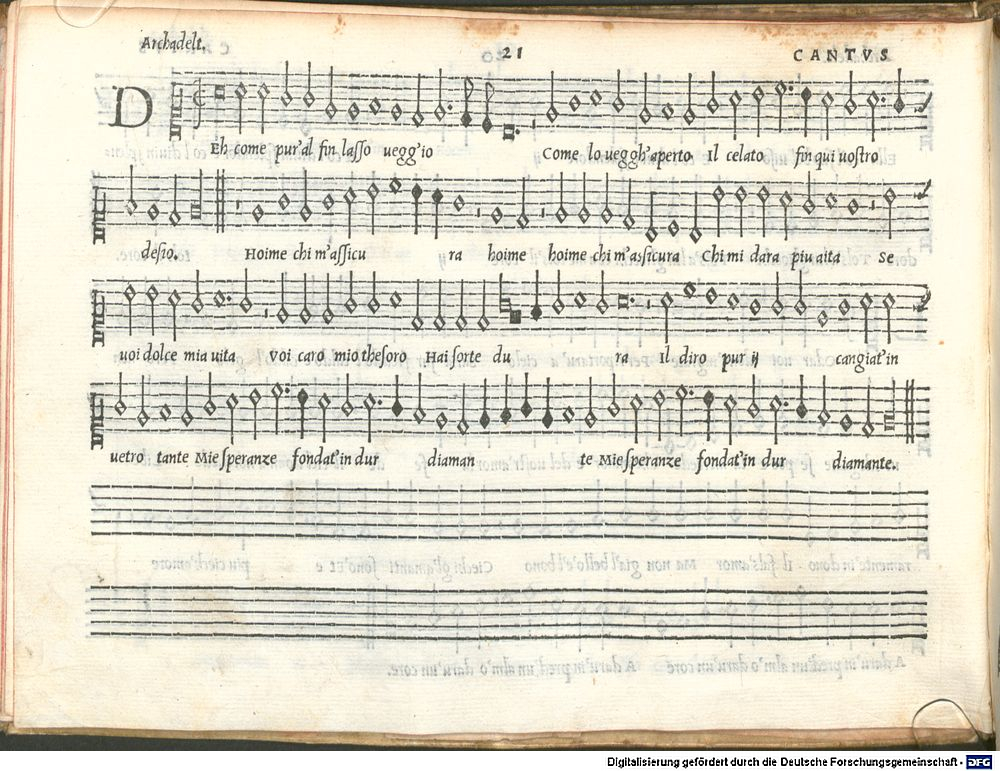 Archadelt. 21 CANTVS
D Eh come pur'al fin lasso uegg'io Come lo ueggh'aperto Il celato fin qui uostro
desio. Hoime chi m'assicu ra hoime hoime chi m'assicura Chi mi dara piu aita Se
uoi dolce mia uita voi caro mio thesoro Hai sorte du ra Il diro pur ij cangiat'in
uetro tante Mie speranze fondat'in dur diaman te Mie speranze fondat'in dur diamante.
Digitalisierung gefördert durch die Deutsche Forschungsgemeinschaft - DFG